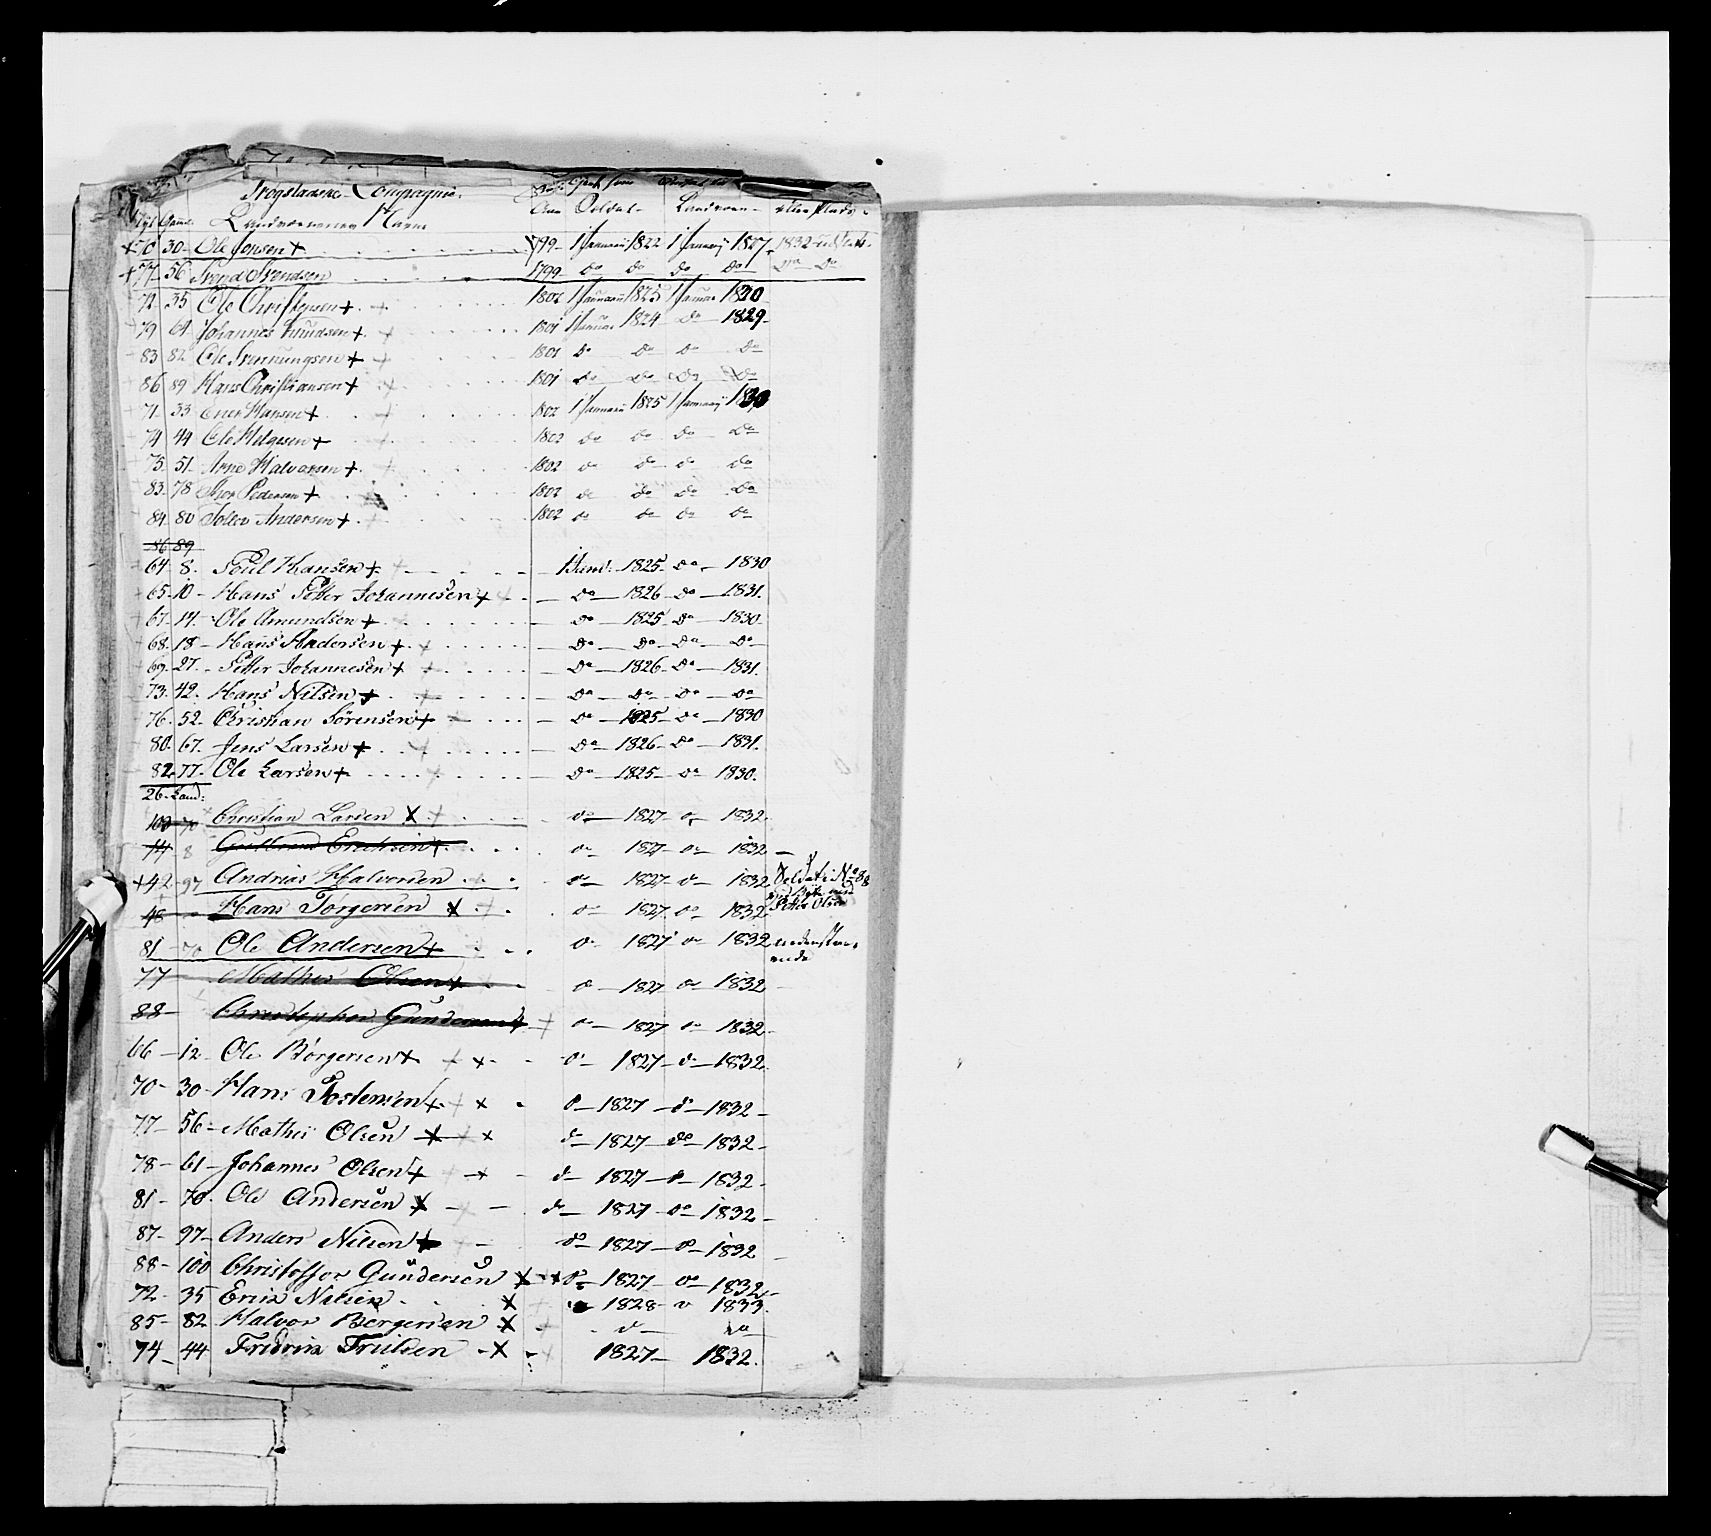 Trøgstadske Compagnie
Landværnernes Navne Aar Soldat Landværn
70 30 Ole Jonsen + 1799 1 Januarii 1822 1 Januarij 1827 1832
77 56 Svend Svendsen 1799 do do do do do do
72 35 Ole Christensen + 1802 1 Januarii 1825 1 Januar 1830
79 64 Johannes Knudsen + 1801 1 Januar 1824 do 1829
83 82 Ole + 1801 do do do do
86 89 Hans Christiansen + 1801 do do do do
71 33 Hansen + 1802 1 Januarii 1825 1 Januarij 1830
74 44 Ole Helgesen + 1802 do do do do
75 51 Arne Halvorsen + 1802 do do do do
83 78 Thor Pedersen + 1802 do do do do
84 80 Tollev Andersen + 1802 do do do do
86 89
64 8 Poul Hansen + 1 Janv: 1825 do 1830
65 10 Hans Petter Johannesen + do 1826 do 1831
67 14 Ole Amundsen + do 1825 do 1830
68 18 Hans Andersen + do do do do
69 27 Petter Johannesen + do 1826 do 1831
73 42 Hans Nilsen + do do do do
76 52 Christian Sörensen + do 1825 do 1830
80 67 Jens Larsen + do 1826 do 1831
82 77 Ole Larsen + do 1825 do 1830
26 Land:
100 70 Christian Larsen X do 1827 do 1832
74 8 Gulbrand Erichsen + do 1827 do 1832
+42 97 Andreas Halvorsen do 1827 do 1832 Soldat i No 88
48 Hans Torgersen X do 1827 do 1832 Petter Olsen
81 70 Ole Andersen + do 1827 do 1832 nedenstaaende
77 Mathis Olsen + do 1827 do 1832
88 Christopher Gundersen + do 1827 do 1832
66 12 Ole Börgersen + x do 1827 do 1832
70 30 Hans Tostensen + x do 1827 do 1832
77 56 Mathis Olsen X x do 1827 do 1832
78 61 Johannes Olsen + x do 1827 do 1832
81 70 Ole Andersen X do 1827 do 1832
87 97 Anders Nilsen + do 1827 do 1832
88 100 Christoffer Gundersen X do 1827 do 1832
72 35 Erik Nilsen X do 1828 do 1833
85 82 Halvor Bergersen X do do
74 44 Fridrik Truelsen X 1827 1832